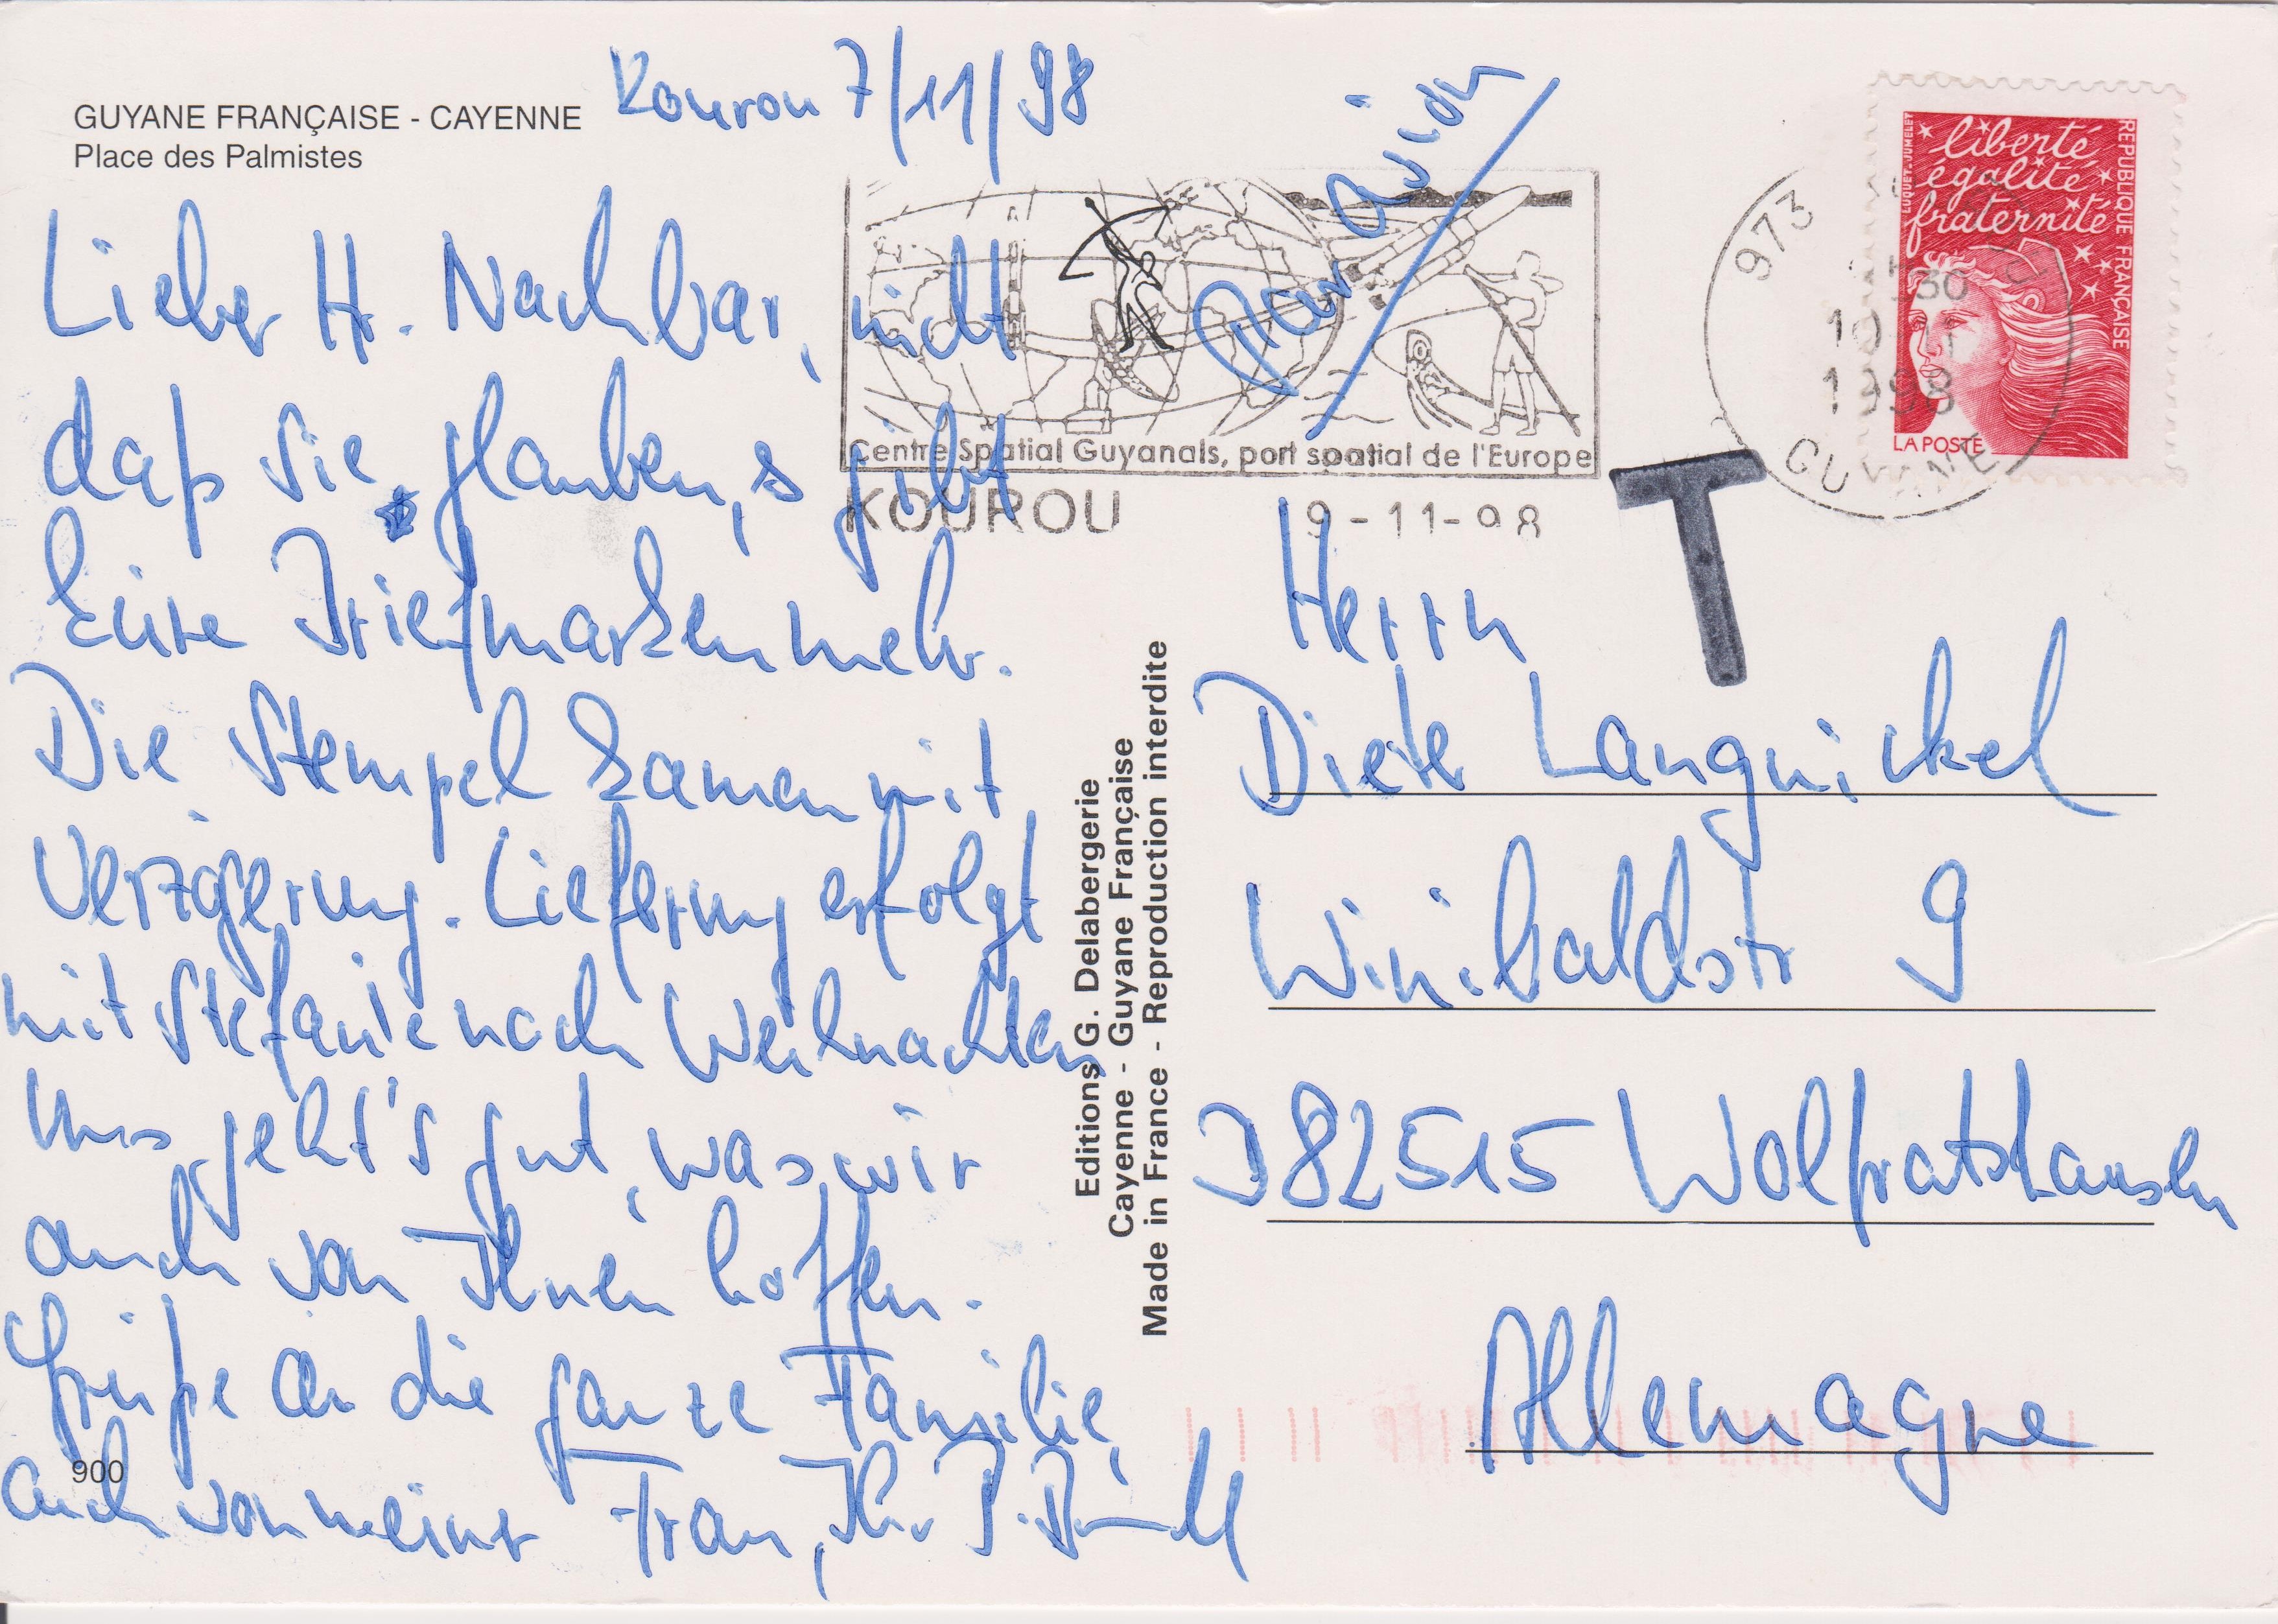 GUYANE FRANÇAISE - CAYENNE
Place des Palmistes
Kourou 7/11/98
Lieber H. Nachbar, nicht
daß Sie glauben, s gibt
keine Briefmarken mehr.
Die Stempel kamen mit
Verzögerung. Lieferung erfolgt
mit Stefanie nach Weihnachten
Uns geht's gut, was wir
auch von Ihnen hoffen.
Grüße an die ganze Familie,
auch von meiner Frau, Ihr
900
Editions G. Delabergerie
Cayenne - Guyane Française
Made in France - Reproduction interdite
par avion
Centre Spatial Guyanais, port spatial de l'Europe
KOUROU 9-11-98
973
10
1998
GUYANE
liberté
égalité
fraternité
REPUBLIQUE FRANÇAISE
LUQUET-JUMELET
LA POSTE
T
Herrn
Dieter Langnickel
Winibaldstr 9
D82515 Wolfratshausen
Allemagne